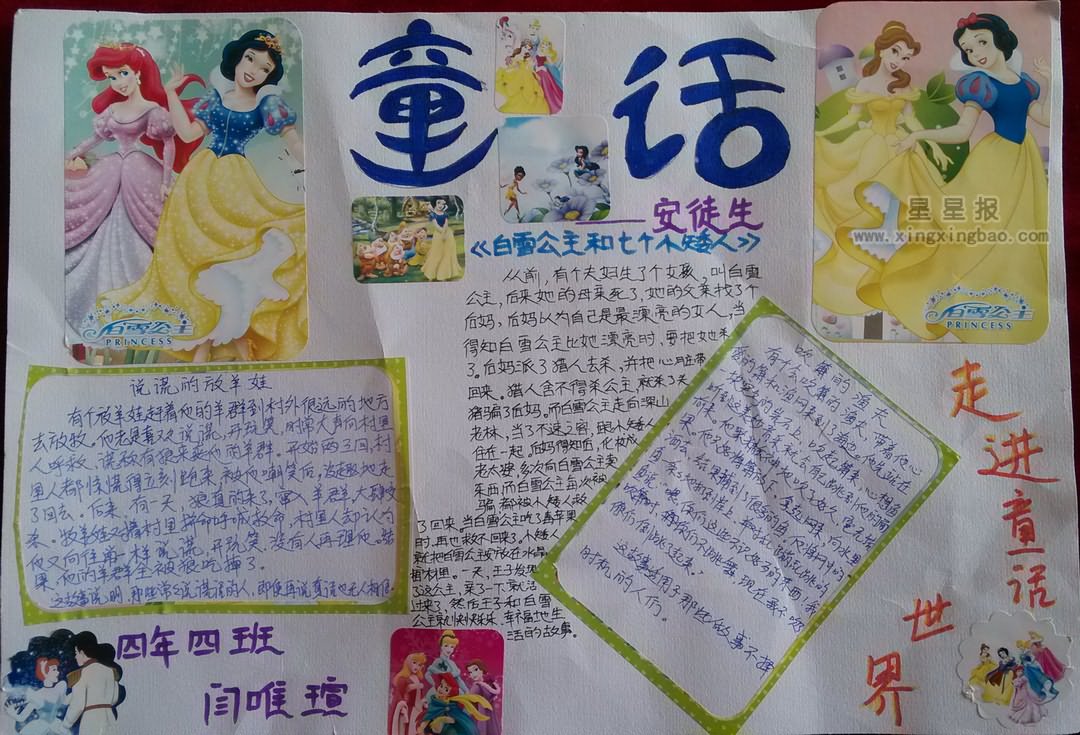 童话
——安徒生
《白雪公主和七个小矮人》
从前，有个夫妇生了个女孩。叫白雪
公主，后来她的母亲死了，她的父亲找了个
后妈，后妈以为自己是最漂亮的女人，当
得知白雪公主比她漂亮时，要把她杀
了。后妈派了猎人去杀，并把心脏带
回来。猎人舍不得杀公主，就杀了头
猪骗了后妈。而白雪公主走向深山
老林，当了不速之客，跟小矮人
住在一起。后妈得知后，化妆成
老太婆，多次向白雪公主卖
东西，而白雪公主每次被
骗都被小矮人救
了回来，当白雪公主吃了毒苹果
时，再也救不回来了。小矮人
就把白雪公主被放在水晶
棺材里。一天，王子发现
了这公主，亲了一下就活
过来了，然后王子和白雪
公主就快快乐乐、幸福地生
活的故事。
白雪公主
PRINCESS
白雪公主
PRINCESS
星星报
www.xingxingbao.com
说谎的放羊娃
有个放羊娃赶着他的羊群到村外很远的地方
去放牧。他老是喜欢说谎，开玩笑，时常大声向村里
人呼救，谎称有狼来袭他的羊群。开始两三回，村
里人都惊慌得立刻跑来，被他嘲笑后，没趣地走
了回去。后来，有一天，狼真的来了，窜入羊群，大肆咬
杀。牧羊娃对着村里拼命呼喊救命，村里人却认为
他又向往常一样说谎，开玩笑，没有人再理他。结
果，他的羊群全被狼吃掉了。
这故事说明，那些常常说谎话的人，即使再说真话也无人相信。
吹箫的渔夫
有个会吹箫的渔夫，带着他心
爱的箫和渔网来到了海边。他先站在
这故事适用于那些做事不择
时机的人们。
走进童话
世界
四年四班
闫唯瑄